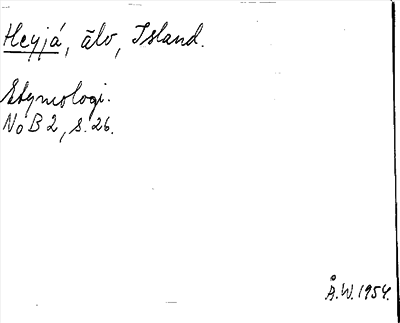 Heyjá, älv, Island.
Etymologi.
NoB 2, s. 26.
Å.W. 1954.